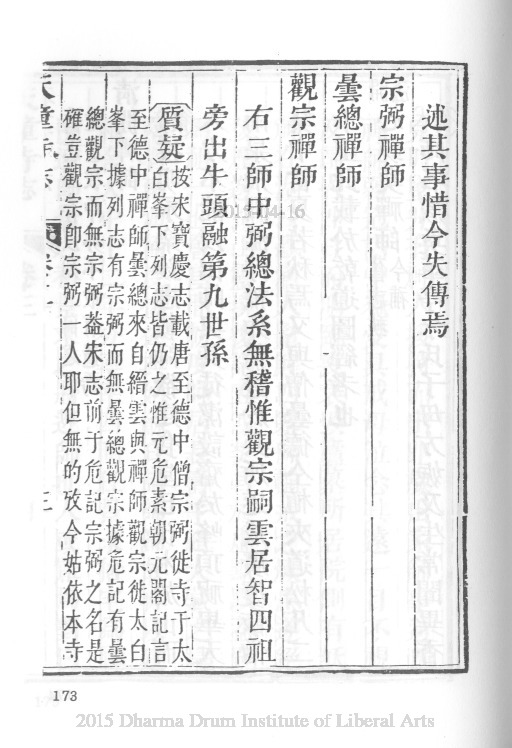 述其事惜今失傳焉
宗弼禪師
曇總禪師
觀宗禪師
右三師中弼總法系無稽惟觀宗嗣雲居智四祖
旁出牛頭融第九世孫
質疑按宋寶慶志載唐至德中僧宗弼徙寺于太
白峯下列志皆仍之惟元危素朝元閣記言
至德中禪師曇總來自縉雲與禪師觀宗徙太白
峯下據列志有宗弼而無曇總觀宗據危記有曇
總觀宗而無宗弼葢宋志前于危記宗弼之名是
確豈觀宗卽宗弼一人耶但無的攷今姑依本寺
天童寺志
卷三
三
173
2015-04-16
2015 Dharma Drum Institute of Liberal Arts